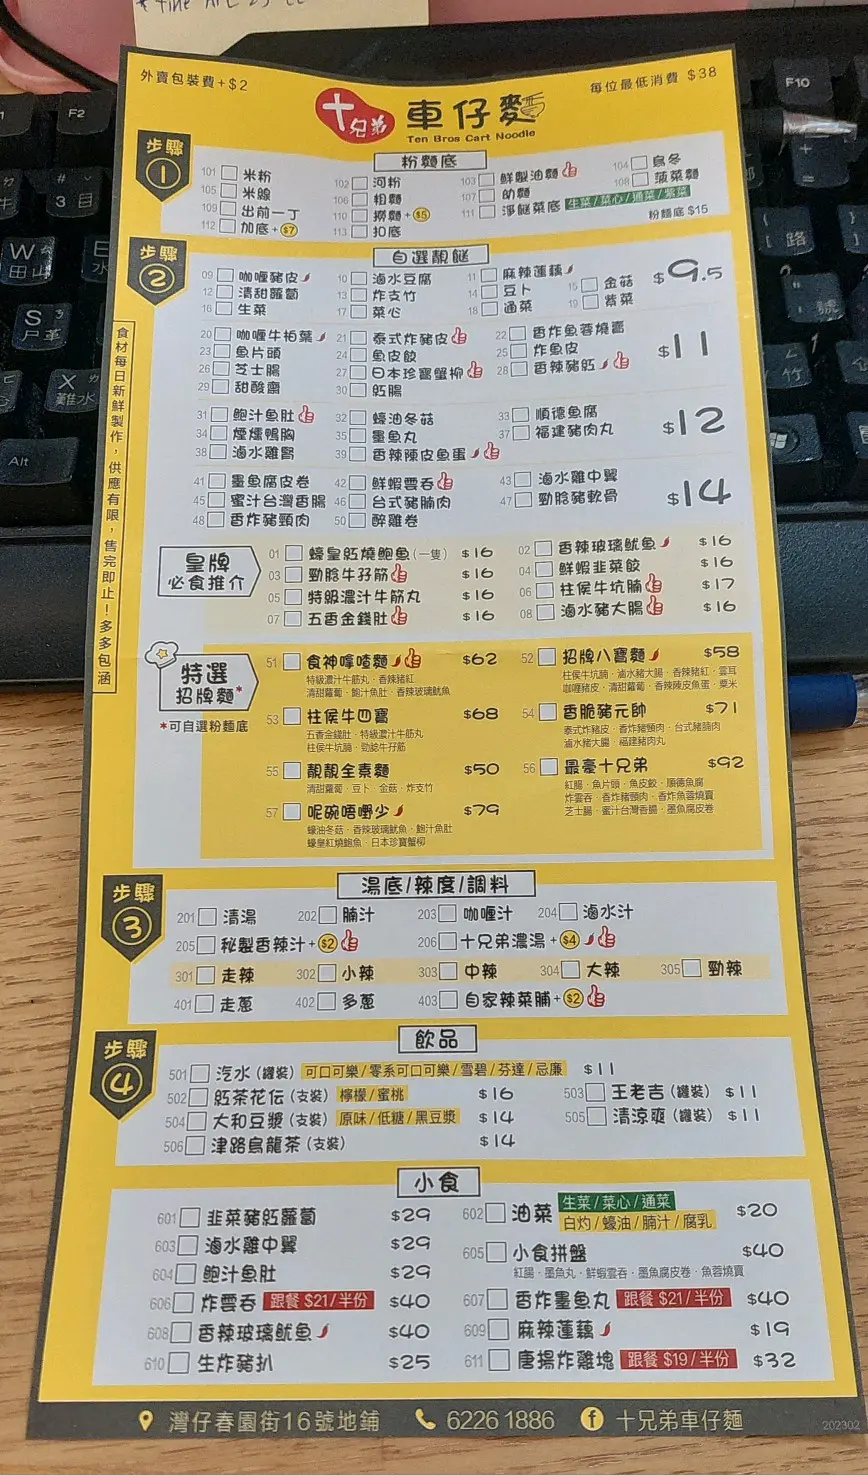 外賣包裝費+$2
每位最低消費 $38
十兄弟 車仔麵
Ten Bros Cart Noodle
步驟 1
粉麵底
101 米粉 102 河粉 103 鮮製油麵 104 烏冬
105 米線 106 粗麵 107 幼麵 108 菠菜麵
109 出前一丁 110 撈麵+$5 111 淨餸菜底 生菜/菜心/通菜/紫菜
112 加底+$7 113 扣底 粉麵底 $15
步驟 2
自選靚餸
09 咖喱豬皮 10 滷水豆腐 11 麻辣蓮藕
12 清甜蘿蔔 13 炸支竹 14 豆卜 15 金菇 $9.5
16 生菜 17 菜心 18 通菜 19 紫菜
20 咖喱牛柏葉 21 泰式炸豬皮 22 香炸魚蓉燒賣
23 魚片頭 24 魚皮餃 25 炸魚皮 $11
26 芝士腸 27 日本珍寶蟹柳 28 香辣豬紅
29 甜酸齋 30 紅腸
31 鮑汁魚肚 32 蠔油冬菇 33 順德魚腐
34 煙燻鴨胸 35 墨魚丸 37 福建豬肉丸 $12
38 滷水雞腎 39 香辣陳皮魚蛋
41 墨魚腐皮卷 42 鮮蝦雲吞 43 滷水雞中翼
45 蜜汁台灣香腸 46 台式豬腩肉 47 勁腍豬軟骨 $14
48 香炸豬頸肉 50 醉雞卷
皇牌
必食推介
01 蠔皇紅燒鮑魚(一隻) $16 02 香辣玻璃魷魚 $16
03 勁腍牛孖筋 $16 04 鮮蝦韭菜餃 $16
05 特級濃汁牛筋丸 $16 06 柱侯牛坑腩 $17
07 五香金錢肚 $16 08 滷水豬大腸 $16
特選
招牌麵*
*可自選粉麵底
51 食神嗱喳麵 $62 52 招牌八寶麵 $58
特級濃汁牛筋丸·香辣豬紅
清甜蘿蔔·鮑汁魚肚·香辣玻璃魷魚
柱侯牛坑腩·滷水豬大腸·香辣豬紅·雲耳
咖喱豬皮·清甜蘿蔔·香辣陳皮魚蛋·粟米
53 柱侯牛四寶 $68 54 香脆豬元帥 $71
五香金錢肚·特級濃汁牛筋丸
柱侯牛坑腩·勁腍牛孖筋
泰式炸豬皮·香炸豬頸肉·台式豬腩肉
滷水豬大腸·福建豬肉丸
55 靚靚全素麵 $50 56 最豪十兄弟 $92
清甜蘿蔔·豆卜·金菇·炸支竹
紅腸·魚片頭·魚皮餃·順德魚腐
炸雲吞·香炸豬頸肉·香炸魚蓉燒賣
芝士腸·蜜汁台灣香腸·墨魚腐皮卷
57 呢碗唔嘢少 $79
蠔油冬菇·香辣玻璃魷魚·鮑汁魚肚
蠔皇紅燒鮑魚·日本珍寶蟹柳
食材每日新鮮製作，供應有限，售完即止！多多包涵
步驟 3
湯底/辣度/調料
201 清湯 202 腩汁 203 咖喱汁 204 滷水汁
205 秘製香辣汁+$2 206 十兄弟濃湯+$4
301 走辣 302 小辣 303 中辣 304 大辣 305 勁辣
401 走蔥 402 多蔥 403 自家辣菜脯+$2
步驟 4
飲品
501 汽水(罐裝) 可口可樂/零系可口可樂/雪碧/芬達/忌廉 $11
502 紅茶花伝(支裝) 檸檬/蜜桃 $16 503 王老吉(罐裝) $11
504 大和豆漿(支裝) 原味/低糖/黑豆漿 $14 505 清涼爽(罐裝) $11
506 津路烏龍茶(支裝) $14
小食
601 韭菜豬紅蘿蔔 $29 602 油菜 生菜/菜心/通菜 $20
白灼/蠔油/腩汁/腐乳
603 滷水雞中翼 $29 605 小食拼盤 $40
紅腸·墨魚丸·鮮蝦雲吞·墨魚腐皮卷·魚蓉燒賣
604 鮑汁魚肚 $29
606 炸雲吞 跟餐 $21/半份 $40 607 香炸墨魚丸 跟餐 $21/半份 $40
608 香辣玻璃魷魚 $40 609 麻辣蓮藕 $19
610 生炸豬扒 $25 611 唐揚炸雞塊 跟餐 $19/半份 $32
灣仔春園街16號地鋪 6226 1886 十兄弟車仔麵
202302
F2
F10
Alt